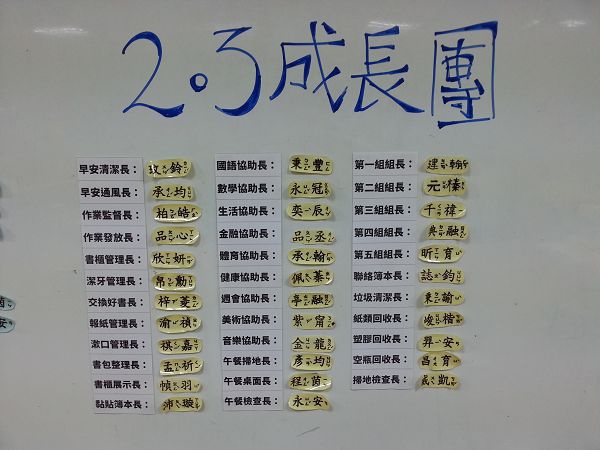 2.3成長團
早安清潔長：玫鈴
早安通風長：承均
作業監督長：柏皓
作業發放長：品心
書櫃管理長：欣妍
潔牙管理長：帛勳
交換好書長：梓菱
報紙管理長：渝禎
漱口管理長：祺嘉
書包整理長：孟析
書櫃展示長：幀羽
黏貼簿本長：沛璇
國語協助長：秉豐
數學協助長：永冠
生活協助長：奕辰
金融協助長：品丞
體育協助長：承翰
健康協助長：佩蓁
週會協助長：亭融
美術協助長：紫甯
音樂協助長：金龍
午餐掃地長：彥均
午餐桌面長：程茵
午餐檢查長：永安
第一組組長：建翰
第二組組長：元榛
第三組組長：千禕
第四組組長：奂融
第五組組長：昕育
聯絡簿本長：誌鈞
垃圾清潔長：東諭
紙類回收長：峻楷
塑膠回收長：昇安
空瓶回收長：昌育
掃地檢查長：威凱